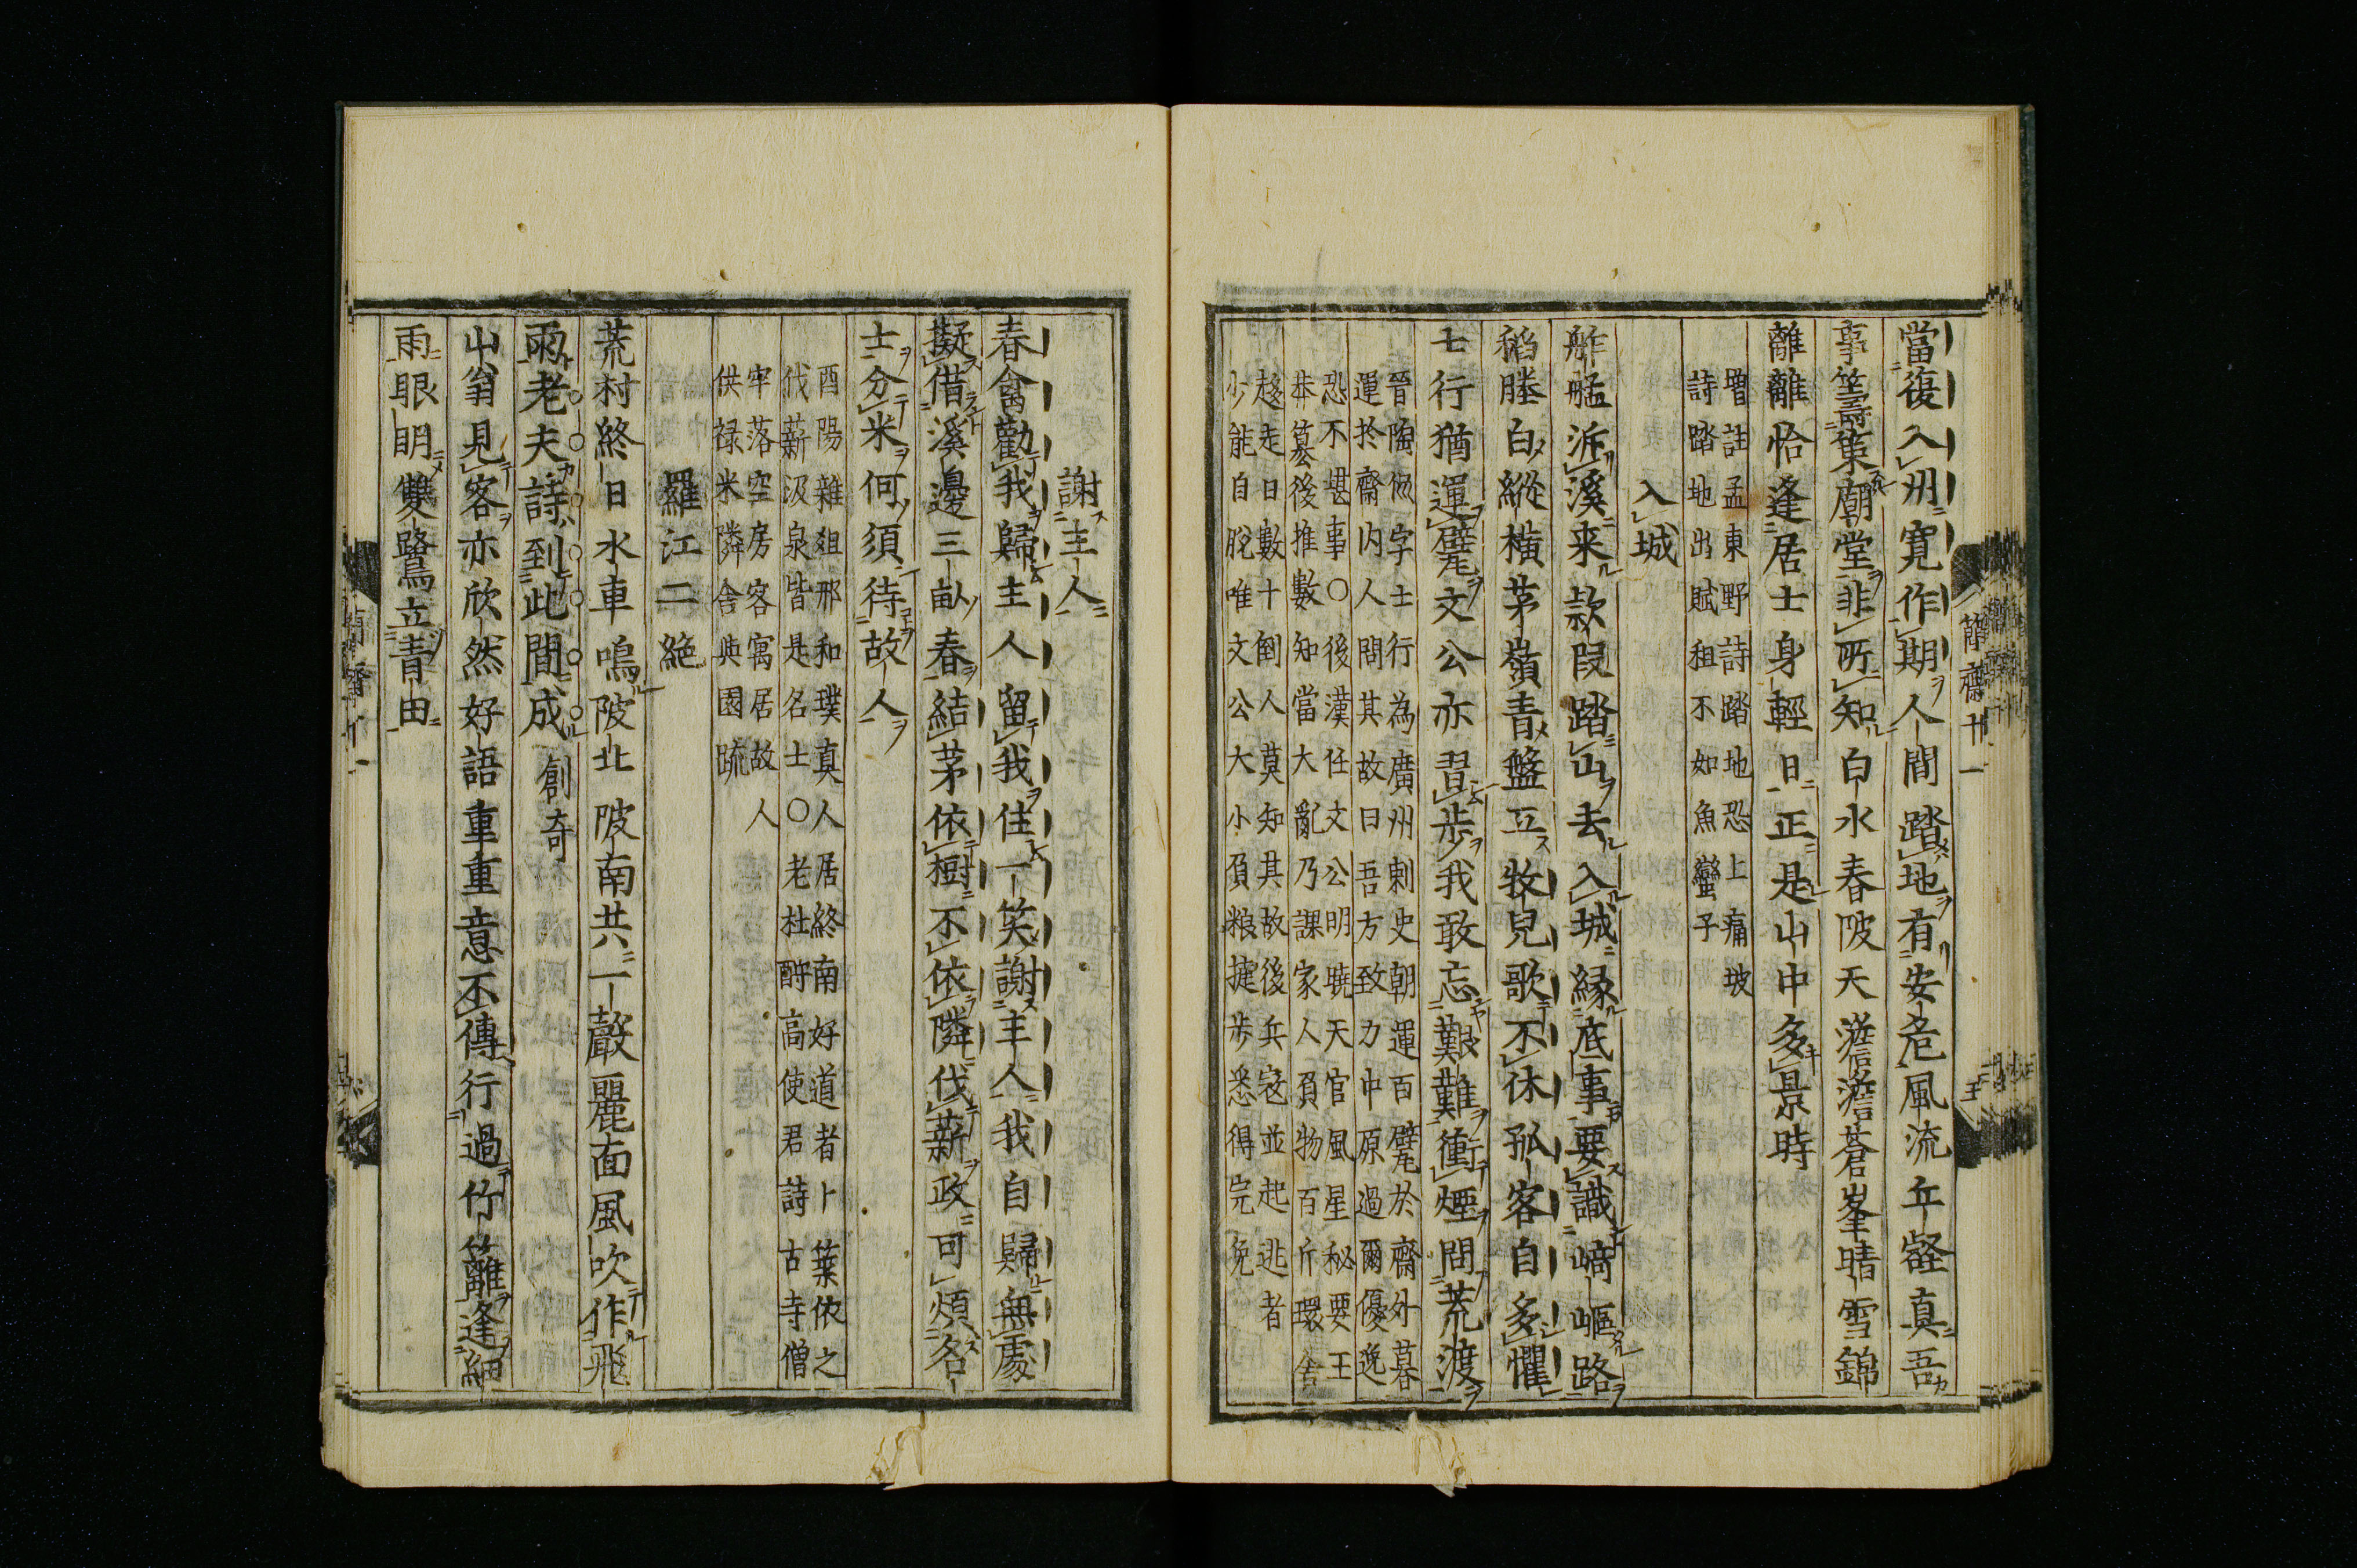 當復入州寬作期人間踏地有安危風流丘壑真吾
事籌策廟堂非所知白水春陂天澹澹蒼峯晴雪錦
離離恰逢居士身輕日正是山中多景時
增註孟東野詩踏地恐土痛坡
詩踏地出賦租不如魚蠻子
入城
舴艋泝溪来款段踏山去入城縁底事要識崎嶇路
稻塍白縱横茅嶺青盤互牧兒歌不休孤客自多懼
士行猶運甓文公亦習歩我敢忘艱難衝煙問荒渡
晉陶侃字士行為廣州刺史朝運百甓於齋外暮
運於齋内人問其故曰吾方致力中原過爾優逸
恐不堪事○後漢任文公明曉天官風星秘要王
莽簒後推數知當大亂乃課家人負物百斤環舎
趍走日數十倒人莫知其故後兵寇並起逃者
少能自脱唯文公大小負粮捷歩悉得完免
簡齋十一
王
謝主人
春禽勸我歸主人留我住一笑謝主人我自歸無處
擬借溪邊三畝春結茅依樹不依隣伐薪政可煩名
士分米何須待故人
酉陽雜俎邢和璞真人居終南好道者卜築依之
伐薪汲泉皆是名士○老杜酧高使君詩古寺僧
牢落空房客寓居故人
供禄米隣舎與園蔬
羅江二絶
荒村終日水車鳴陂北陂南共一聲麗面風吹作飛
雨老夫詩到此間成 創奇
山翁見客亦欣然好語重重意不傳行過竹籬逢細
雨眼明雙鷺立青田